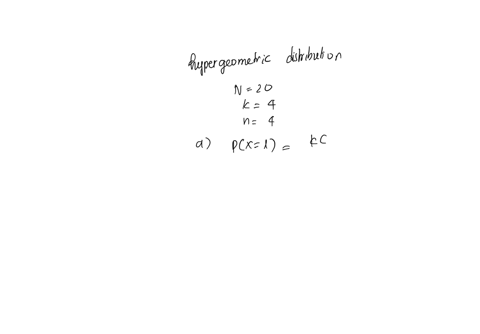 hypergeometric distribution
N = 20
k = 4
n = 4
a) P(x=1) = kC